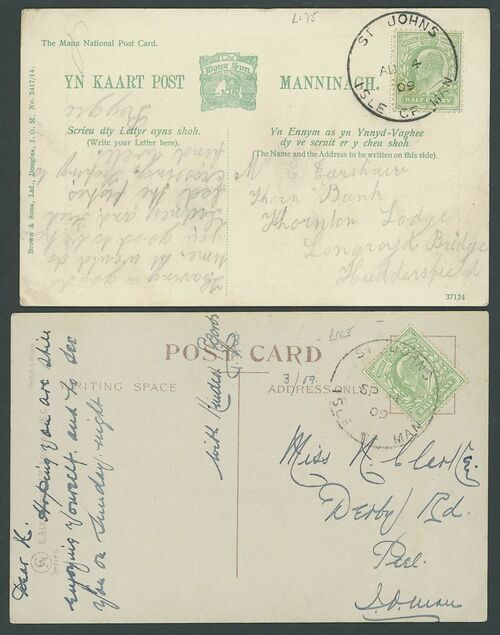 L175
The Manx National Post Card.
YN KAART POST
MANNINAGH.
ST JOHNS
AU 4
09
ISLE OF MAN
HALF
Brown & Sons, Ltd., Douglas, I. O. M. No. 2417/14.
Scrieu dy Lettyr ayns shoh.
(Write your Letter here).
Yn Ennym as yn Ynnyd-Vaghee
dy ve scruit er y cheu shoh.
(The Name and the Address to be written on this side).
Having a good
time, it would do
you good to be here
Sidney and
crossing, hoping to
find well.
Reggie
Earshaw
Thorn Bank
Thornton Lodge
Longroyd Bridge
Huddersfield
37124
L165
POST CARD
WRITING SPACE
ADDRESS ONLY
3/09.
ST JOHNS
SP
09
MAN
Dear K. Hoping you are still
enjoying yourself. and to see
you on Sunday night
with Kindest Regards
Miss K. Clarke.
Derby Rd.
Peel.
I.o.man